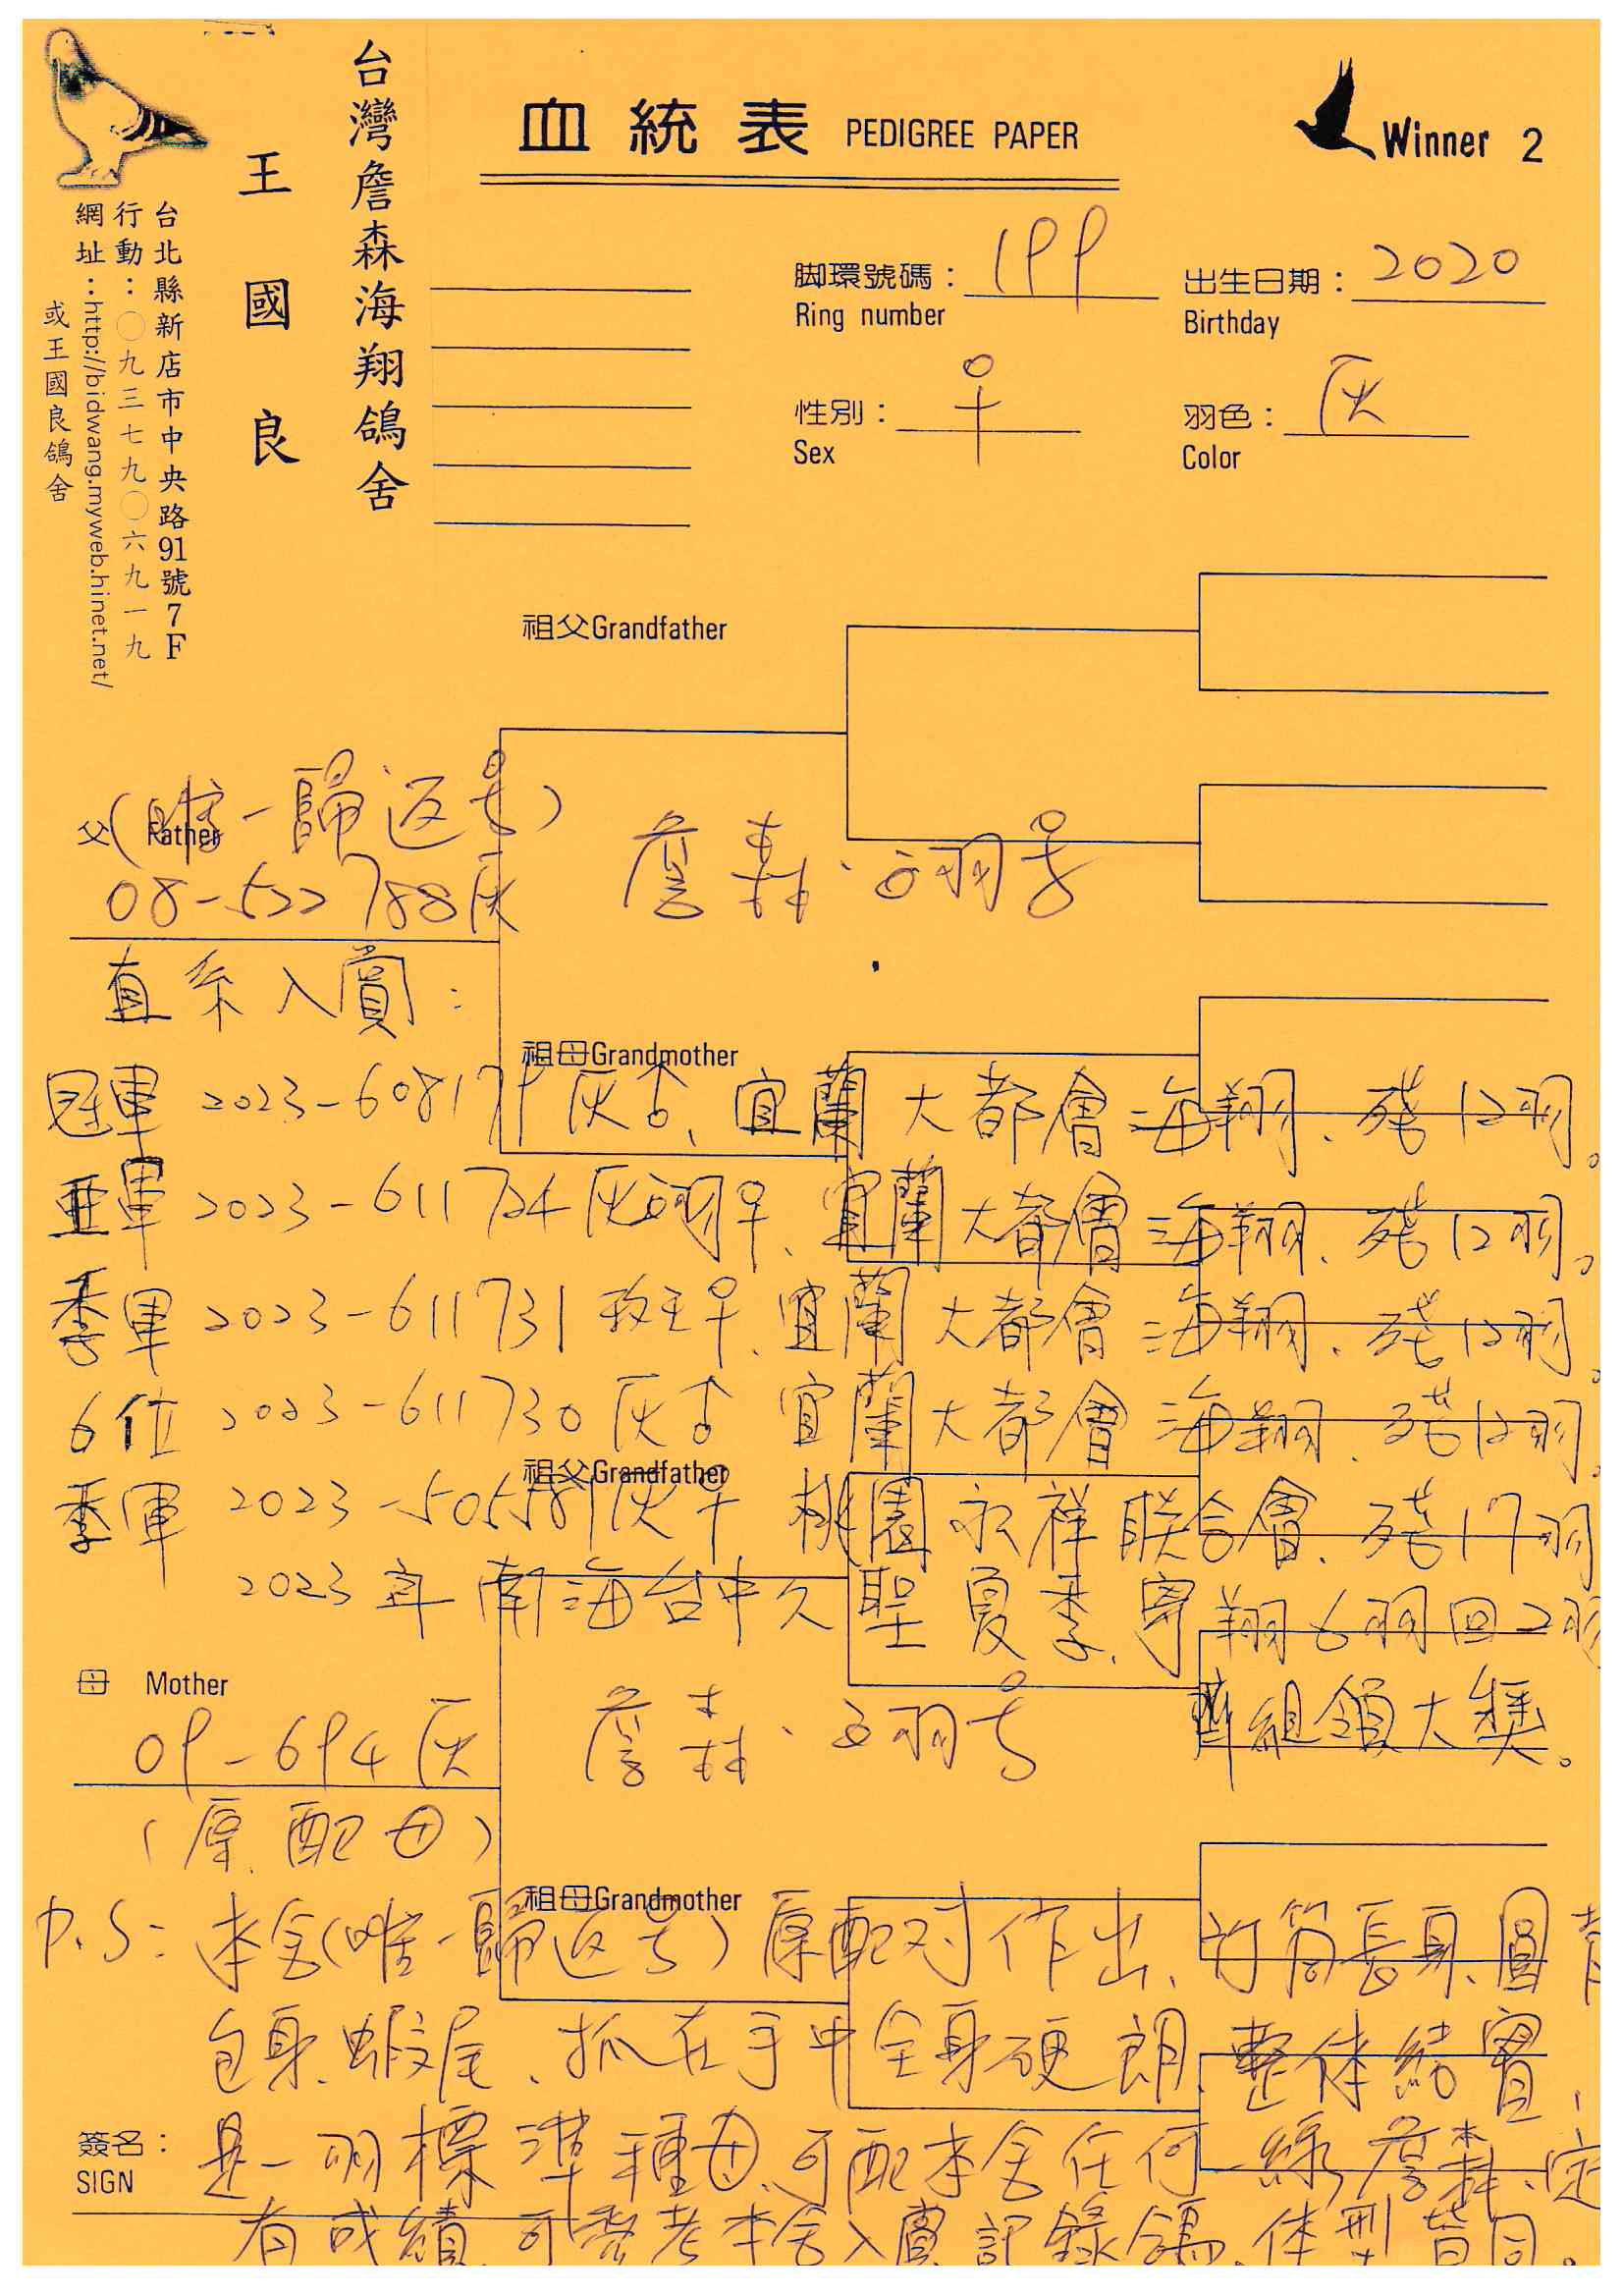 血統表 PEDIGREE PAPER
Winner 2
台灣詹森海翔鴿舍
王國良
台北縣新店市中央路91號7F
行動：〇九三七九〇六九一九
網址：http://bidwang.myweb.hinet.net/
或王國良鴿舍
脚環號碼： 199
Ring number
出生日期： 2020
Birthday
性別： ♀
Sex
羽色： 灰
Color
祖父Grandfather
(唯一歸返号)
父 Father
08-522788灰
詹森·白翔号
直系入賞：
祖母Grandmother
冠軍 2023-608179灰♂、宜蘭大都會海翔、残12羽。
亜軍 2023-611724灰白翔♀、宜蘭大都會海翔、残12羽。
季軍 2023-611731 斑王♀、宜蘭大都會海翔、残12羽。
6位 2023-611730 灰♂ 宜蘭大都會海翔、残12羽。
祖父Grandfather
季軍 2023-505581灰♀ 桃園永祥联合會、残17羽
2023年南海台中久聖夏季、寄翔6羽回2羽
母 Mother
薺組領大獎。
09-694灰
詹森·白翔号
(原配母)
祖母Grandmother
P.S: 本舍(唯一歸返号)原配对作出、竹筒長身、圓背
包身、蝦尾、抓在手中全身硬朗、整体結實，
簽名：
SIGN
是一羽標準種母、可配本舍任何一線詹森、定
有成績、可參考本舍入賞記錄鴿、体型皆同。